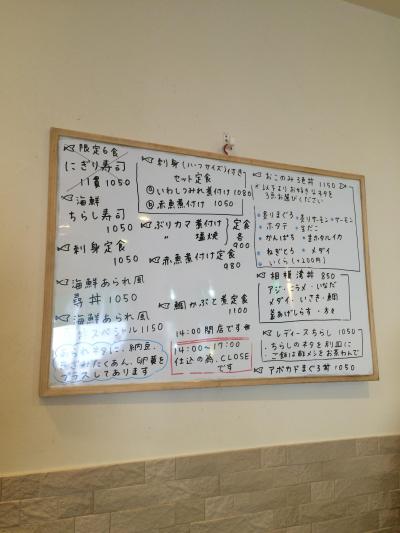 限定6食
にぎり寿司
11貫 1050
海鮮
ちらし寿司
1050
刺身定食
1050
海鮮あられ風
丼 1050
海鮮あられ風
スペシャル 1150
納豆、
たくあん、卵黄を
プラスしてあります
刺身(いつサイズ)付き
セット定食
ⓐいわしつみれ煮付け 1080
ⓑ赤魚煮付け 1050
ぶりカマ煮付け 定食
〃 塩焼 各
900
赤魚煮付け定食
980
鯛かぶと煮定食
1100
14:00閉店です
14:00~17:00
仕込の為、CLOSE
です
おこのみ3色丼 1150
※以下よりお好きなネタを
3点お選びください
まぐろ サーモン
ホタテ
かんぱち ホタルイカ
ねぎとろ メダイ
いくら(+200円)
相模湾丼 850
アジ・ヒラメ・いなだ
メダイ・いさき・鯛
釜あげしらす・
レディースちらし 1050
・ちらしのネタを別皿に
・ご飯は酢メシをお茶わんで
アボカドまぐろ丼 1050